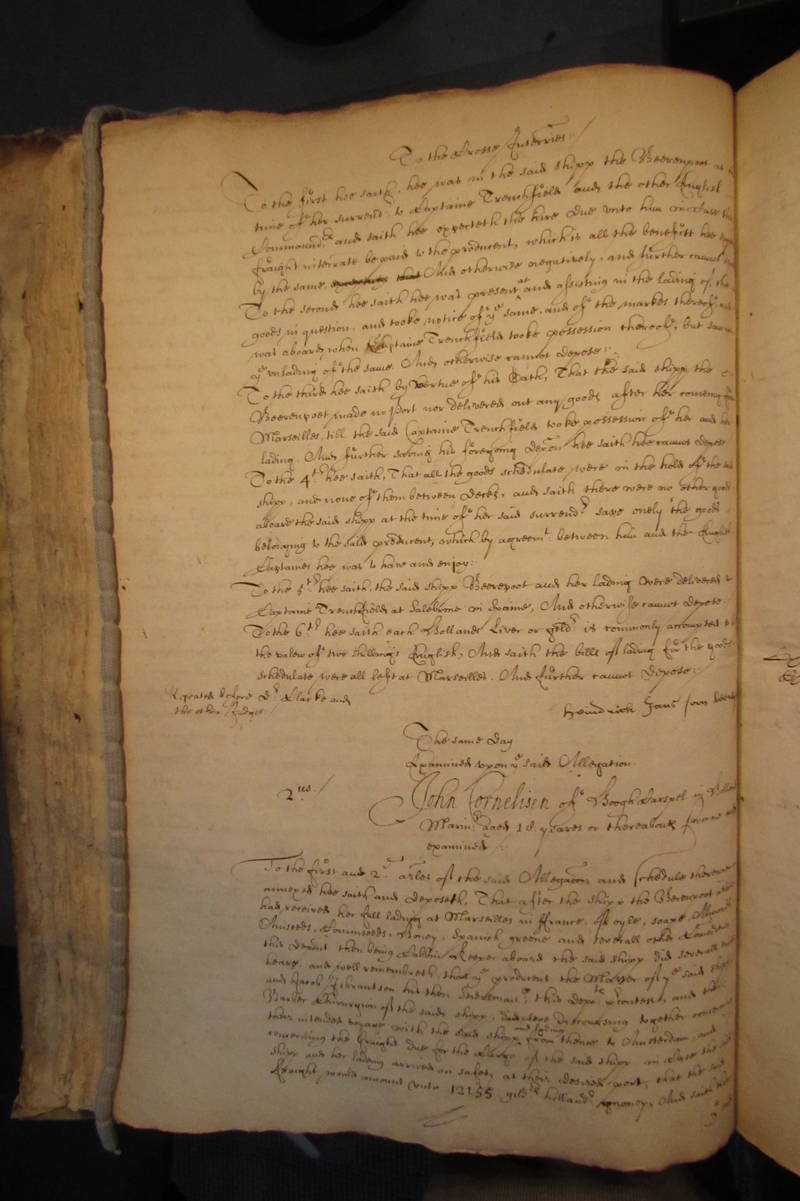 To the Crosse Interries./
To the first hee saith, hee was in the said shipp the Beerenpoot at
time of her surrendr to Captaine Trenchfield and the other English
Commandrs and saith hee expecteth the hire due unto him in Case the
fraught interrate be paid to the producent, which is all the benefitt hee
by the same. And otherwise negatively, and further cannot
To the second hee saith hee was present at and assisting in the lading of the
goods in question, and tooke notice of ye same, and of the markes thereof, and
was aboard when Captaine Trenchfield tooke possession thereof, but saw
ye unlading of the same. And otherwise cannot depose:
To the third hee saith by vertue of his Oath, That the said shipp the
Beerenpoot made no port nor delivered out any goods after her coming from
Marseilles, till the said Captaine Trenchfield tooke possession of her and her
lading. And further saving his foregoing deposn hee saith hee cannot depose
To the 4th hee saith, That all the goods schedulate, were in the hold of the said
shipp, and none of them between decks, and saith there were no other goods
aboard the said shipp at the time of her said surrendr save onely the goods
belonging to the said producent, which by agreemt between him and the English
Captaines hee was to have and enjoy:
To the 5th hee saith, the said shipp Beerepoot and her lading were delivered to
Captaine Trenchfield at in Spaine, And otherwise cannot depose.
To the 6th hee saith each Hollands Liver or gildr is commonly accompted to
the valew of two shillings English, And saith the bills of lading for the goods
schedulate were all left at Marseilles. And further cannot depose.
Repeated before Dr Clarke and
the other Judges
Hendrick Jans
The same day
Examined upon ye said Allegation.
2us./
John Cornelisen of in
Marinr aged 18 yeares or thereabouts sworne and
examined
To the first and 2d arles of the said Allegaon and schedule thereunto
annexed hee saith and deposeth, That after the shipp the Beerenpoot
had received her full lading at Marseilles in France, of oyle, soape, Almonds
Anisseeds, Comminseeds, honey, Spanish greene and severall other Commodities
this deponent then being Cabbin keeper aboard the said shipp did severall times
heare, and well remembreth, that ye producent the Master of ye said shipp
and Jacob Isbrantson his then Steersman, this depts precontest, and the
Barber Chirurgion of the said shipp, discoursing together concerning
their intended voyage with the said shipp and lading from thence to Amsterdam, and
concerning the fraught due for the of the said shipp in Case the said
shipp and her lading arrived in safety at their desired port, that the said
fraught would amount unto 12155 gildrs hollands money, And saith